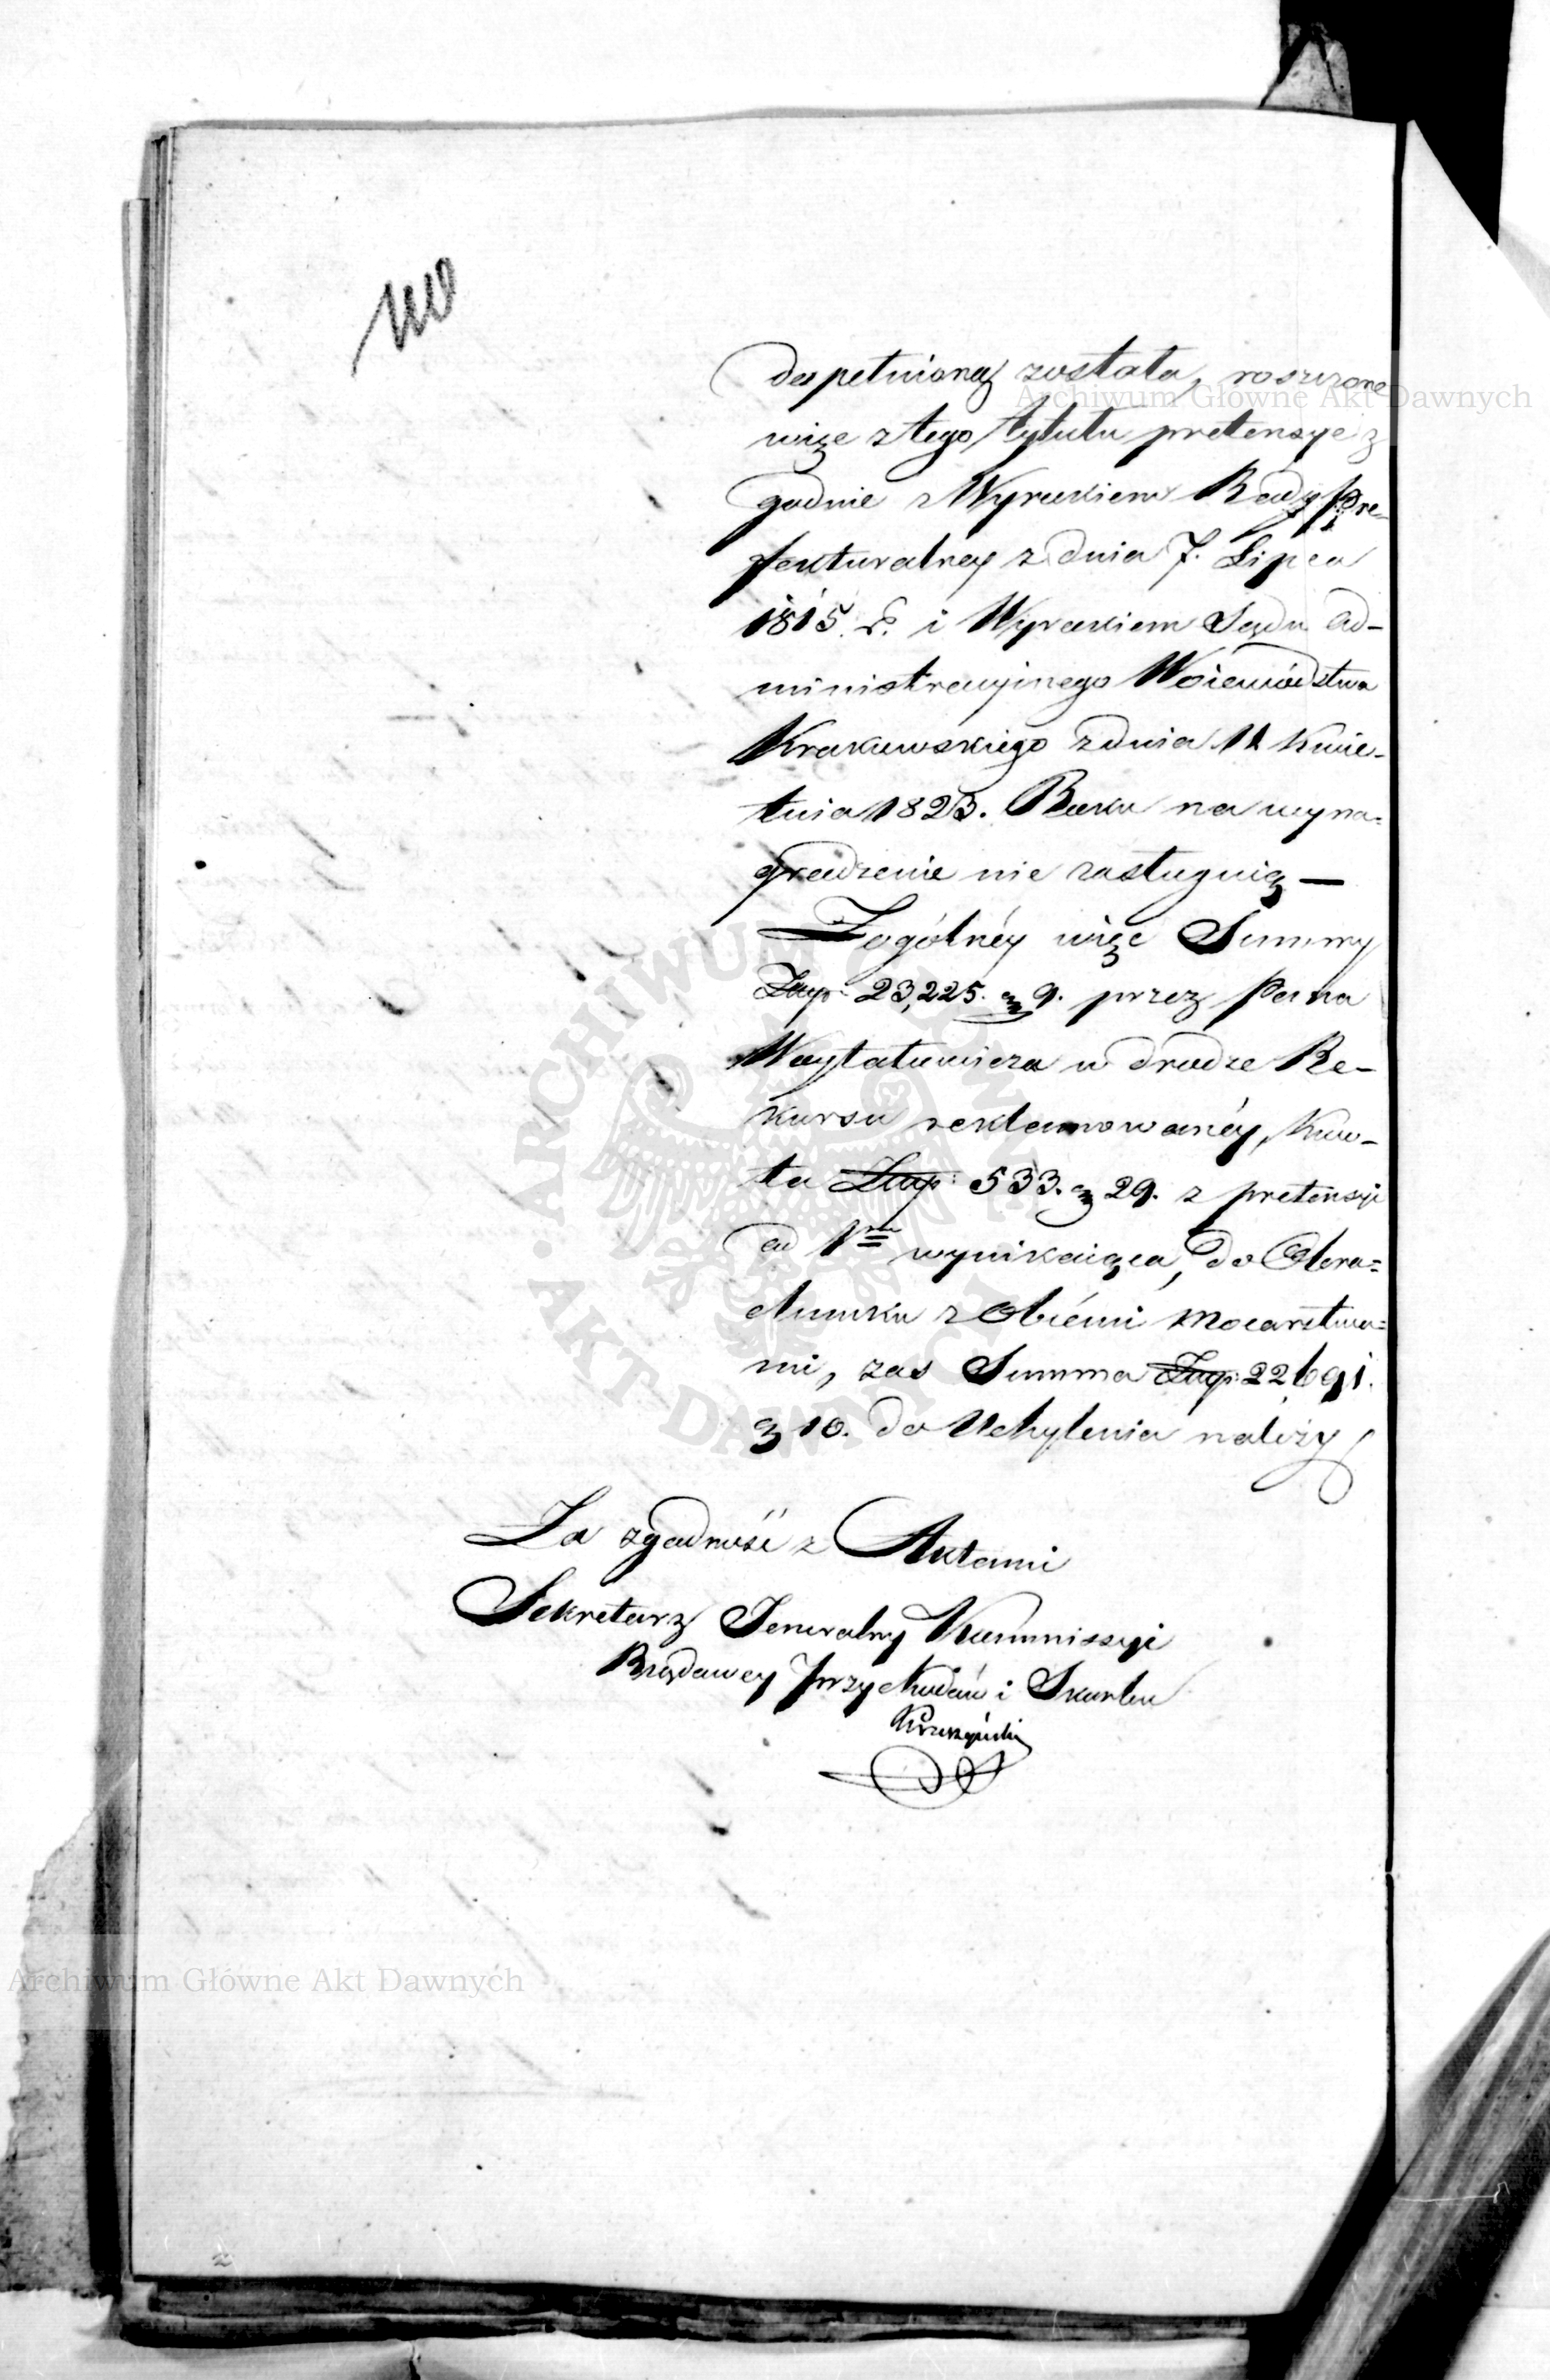 110
dopełnioną została, roszczone
więc z tego tytułu pretensye z
godnie z Wyrokiem Rady Pre-
fekturalney z dnia 7. Lipca
1815. r. i Wyrokiem Sądu Ad-
ministracyjnego Woiewództwa
Krakowskiego z dnia 11 Kwie-
tnia 1823. Roku na wyna=
grodzenie nie zasługuią —
Z ogólnéy więc Summy
Złop: 23,225. g 9. przez Pana
Woytatowicza w drodze Re-
kursu reklamowanéy, Kwo-
ta Złop: 533. g 29. z pretensyi
ad 1mm wynikaiąca, do Obra=
chunku z Obiémi Mocarstwa=
mi, zas Summa Złop: 22,691.
g 10. do Uchylenia należy
Za zgodność z Aktami
Sekretarz Jeneralny Kommissyi
Rządowey Przychodów i Skarbu
Archiwum Główne Akt Dawnych
ARCHIWUM GŁÓWNE AKT DAWNYCH
Archiwum Główne Akt Dawnych